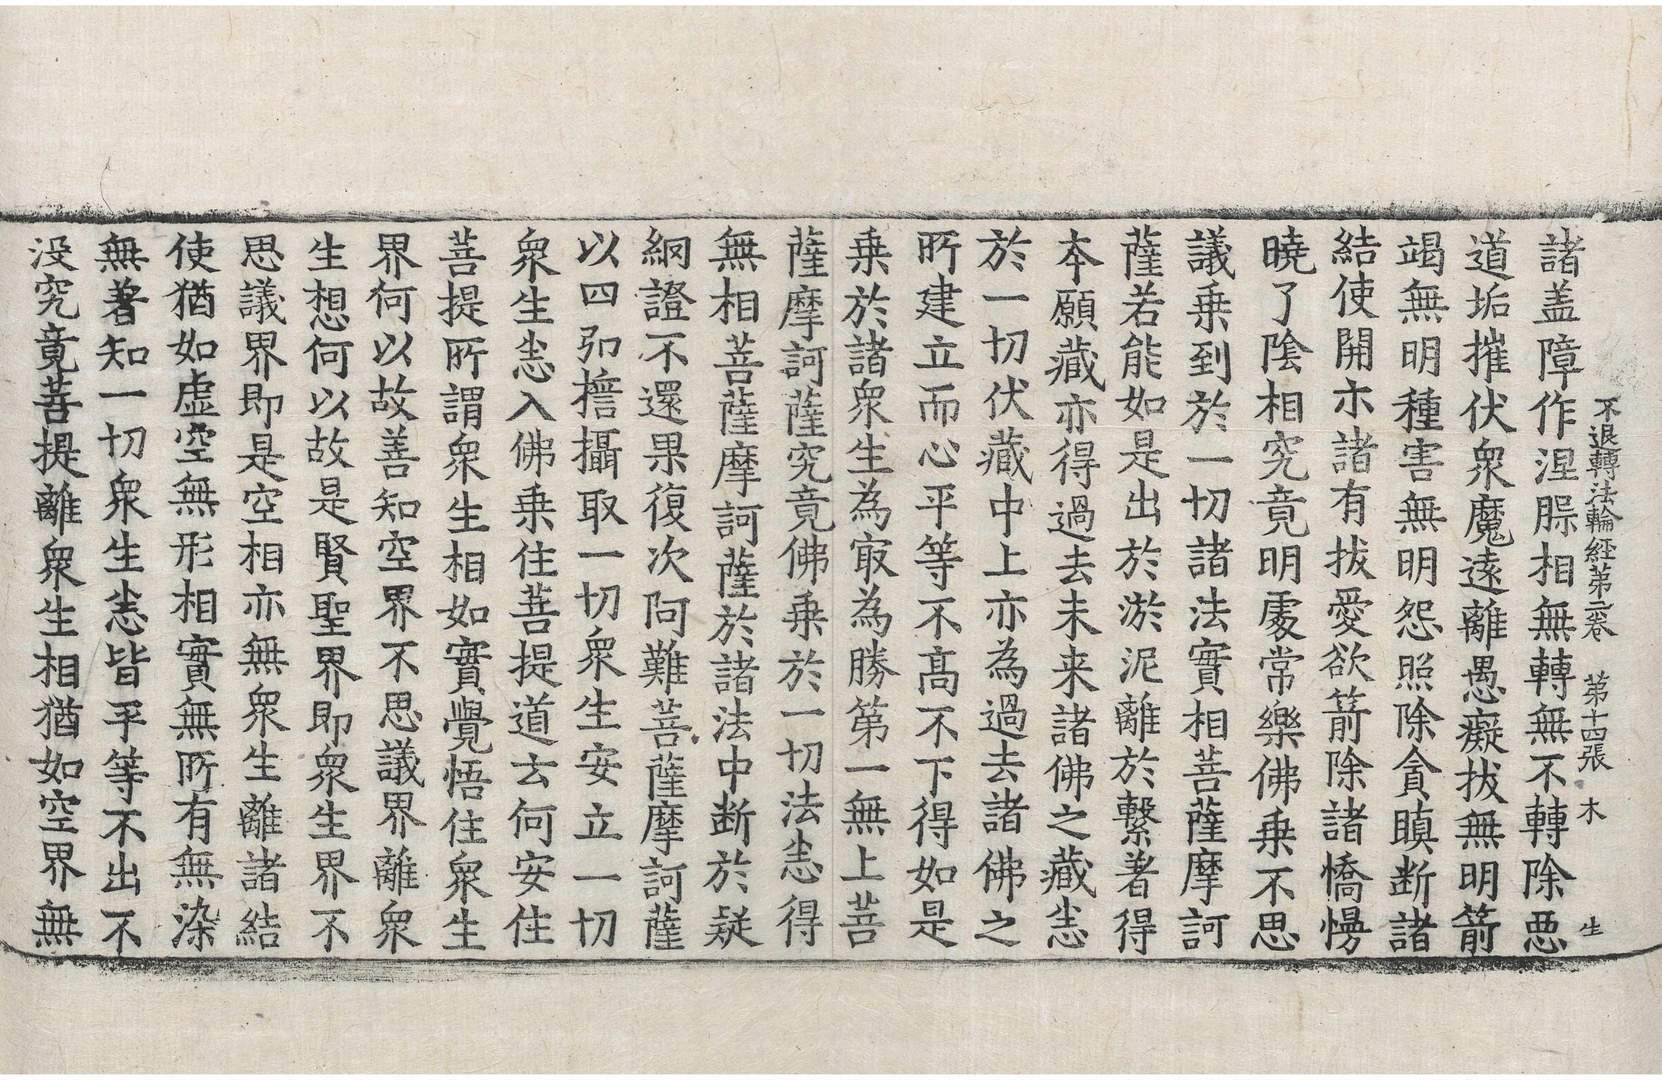 不退轉法輪經第二卷 第十四張 木 生
諸盖障作涅槃相無轉無不轉除惡
道垢摧伏衆魔遠離愚癡拔無明箭
竭無明種害無明怨照除貪瞋断諸
結使開示諸有拔愛欲箭除諸憍慢
曉了陰相究竟明處常樂佛乗不思
議乗到於一切諸法實相菩薩摩訶
薩若能如是出於淤泥離於繫著得
本願藏亦得過去未来諸佛之藏悉
於一切伏藏中上亦為過去諸佛之
所建立而心平等不髙不下得如是
乗於諸衆生為㝡為勝第一無上菩
薩摩訶薩究竟佛乗於一切法悉得
無相菩薩摩訶薩於諸法中断於疑
網證不還果復次阿難菩薩摩訶薩
以四弘擔攝取一切衆生安立一切
衆生悉入佛乗住菩提道云何安住
菩提所謂衆生相如實覺悟住衆生
界何以故善知空界不思議界離衆
生想何以故是賢聖界即衆生界不
思議界即是空相亦無衆生離諸結
使猶如虚空無形相實無所有無染
無著知一切衆生悉皆平等不出不
没究竟菩提離衆生相猶如空界無